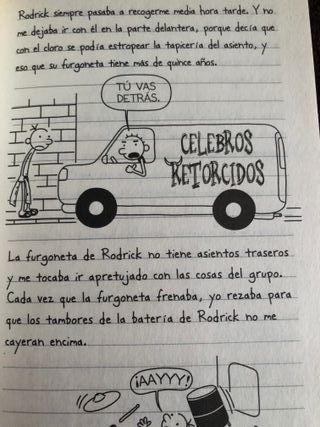 Rodrick siempre pasaba a recogerme media hora tarde. Y no
me dejaba ir con él en la parte delantera, porque decía que
con el cloro se podía estropear la tapicería del asiento, y
eso que su furgoneta tiene más de quince años.
TÚ VAS
DETRÁS.
CELEBROS
RETORCIDOS
La furgoneta de Rodrick no tiene asientos traseros
y me tocaba ir apretujado con las cosas del grupo.
Cada vez que la furgoneta frenaba, yo rezaba para
que los tambores de la batería de Rodrick no me
cayeran encima.
¡AAYYY!